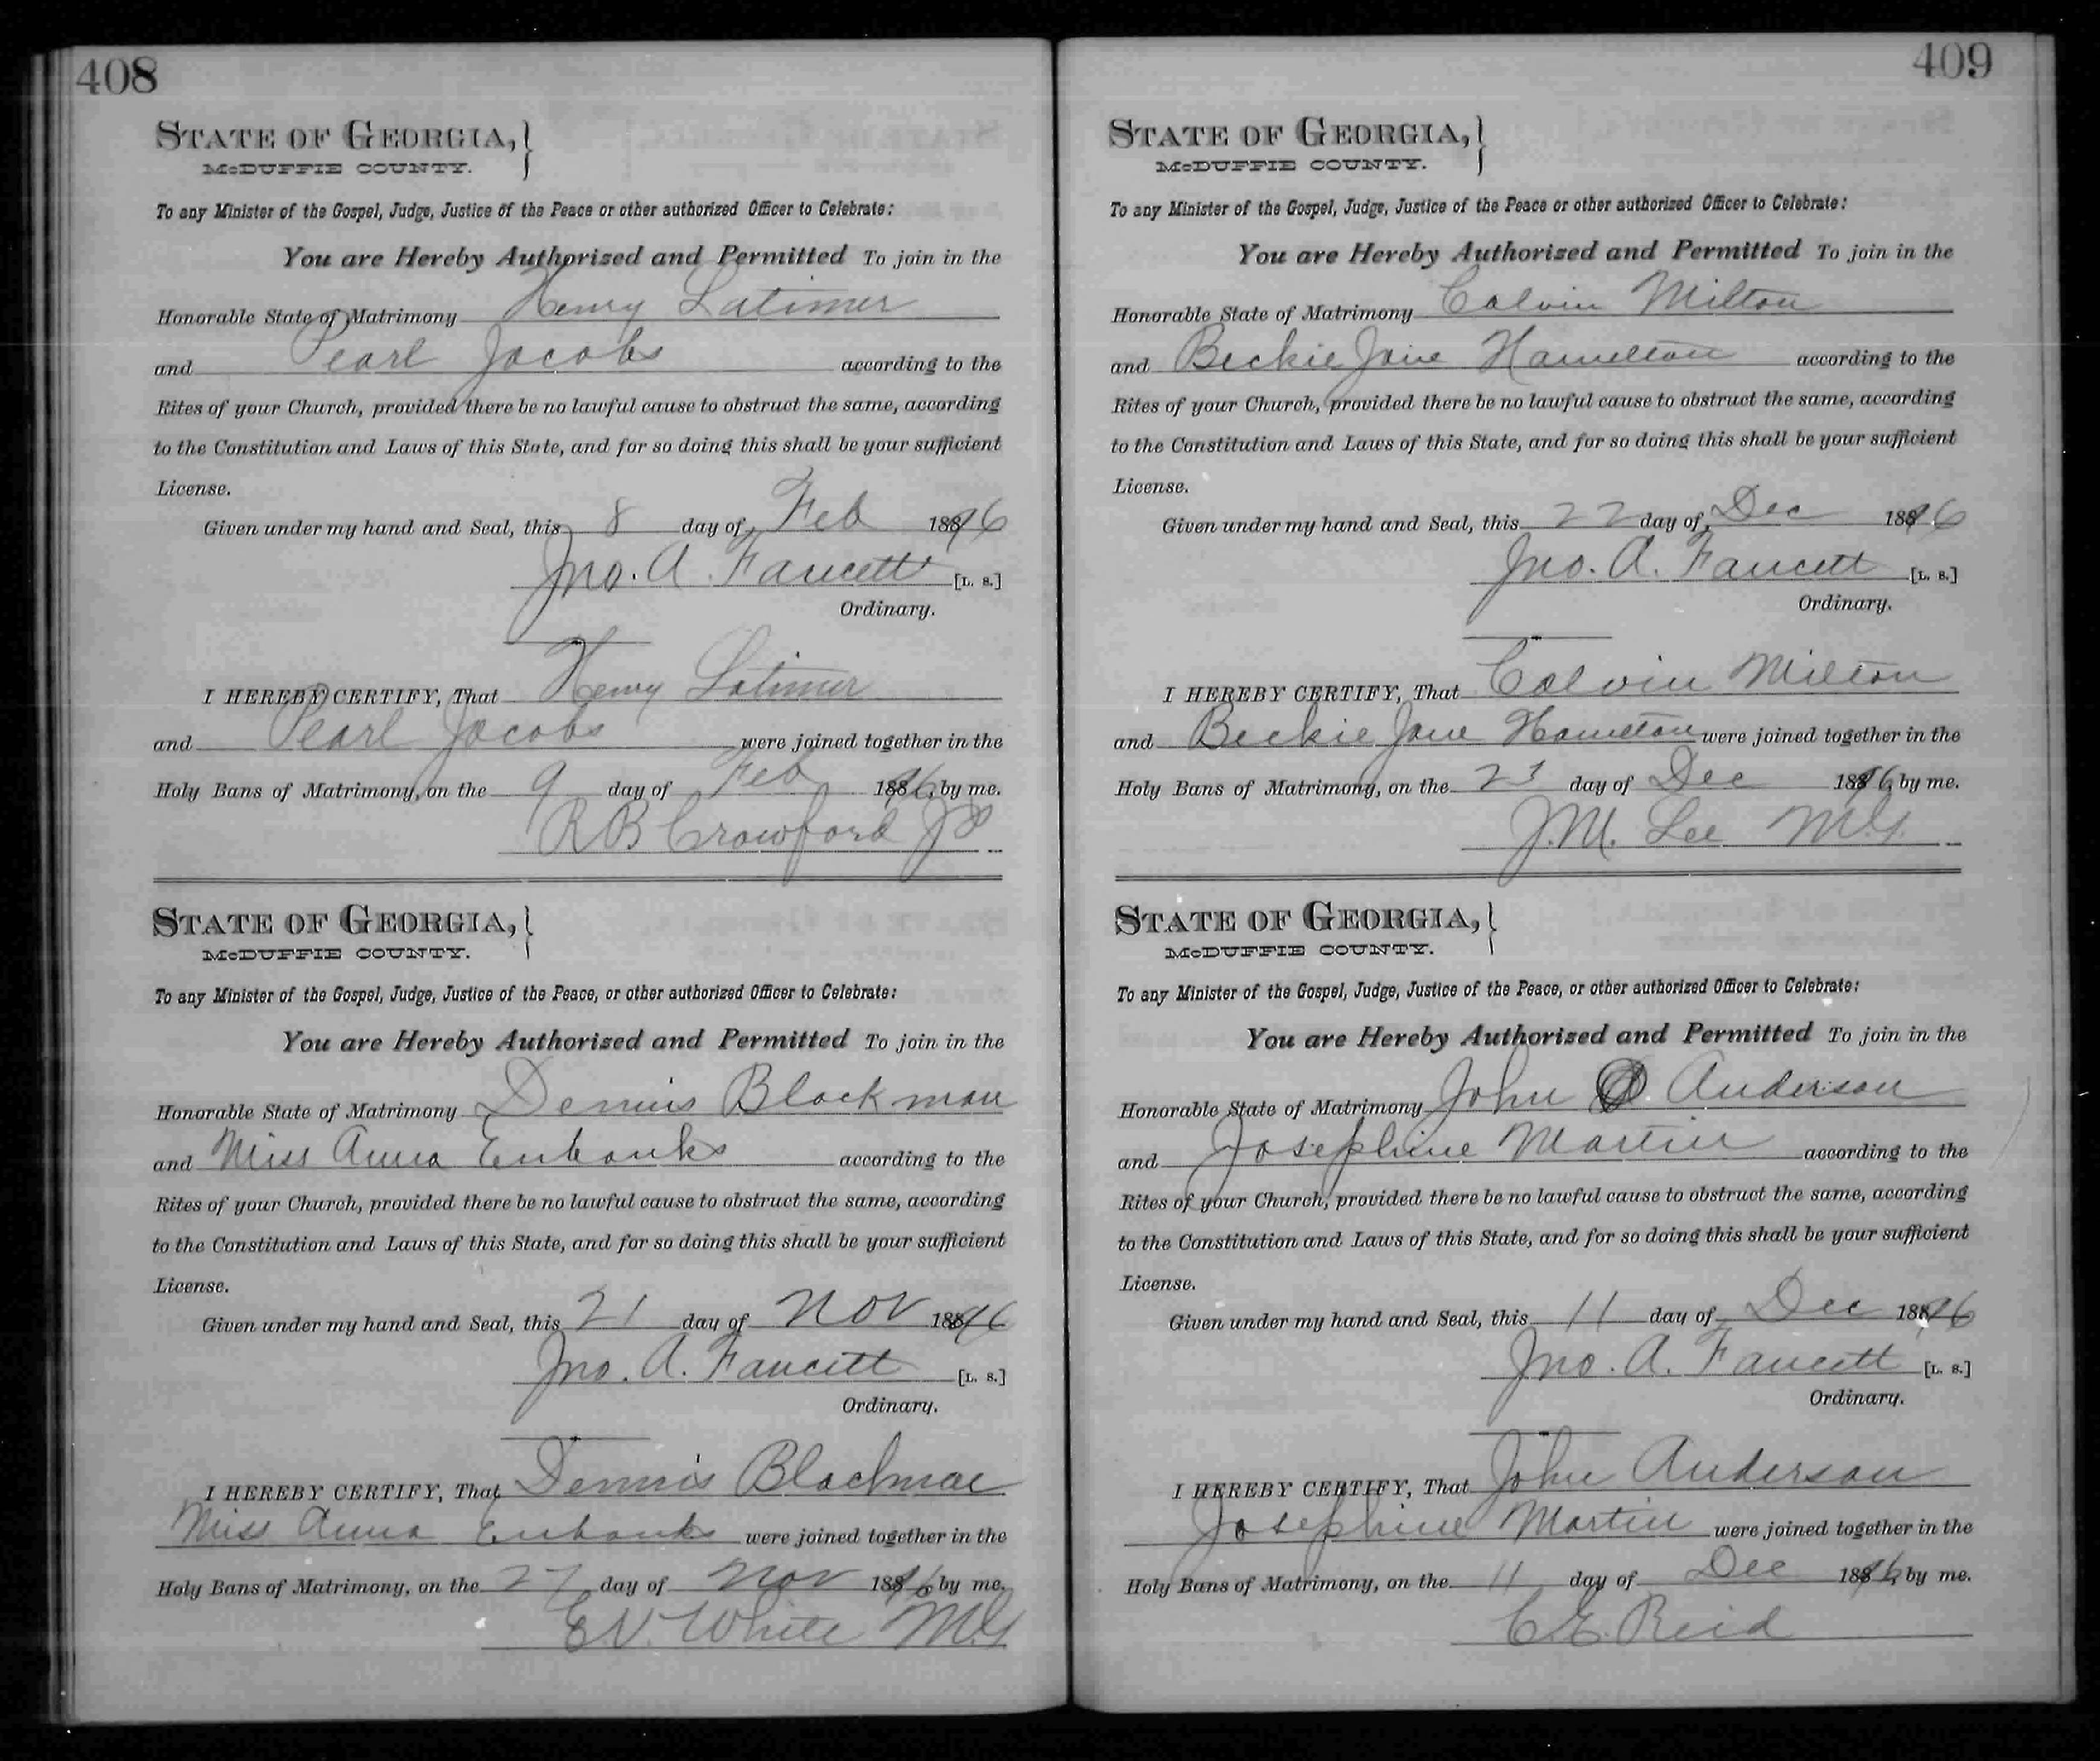 408
STATE OF GEORGIA,
McDUFFIE COUNTY.
To any Minister of the Gospel, Judge, Justice of the Peace or other authorized Officer to Celebrate:
You are Hereby Authorized and Permitted To join in the
Honorable State of Matrimony Henry Latimer
and Pearl Jacobs according to the
Rites of your Church, provided there be no lawful cause to obstruct the same, according
to the Constitution and Laws of this State, and for so doing this shall be your sufficient
License.
Given under my hand and Seal, this 8 day of Feb 1896
Jno. A. Faucett [L. S.]
Ordinary.
I HEREBY CERTIFY, That Henry Latimer
and Pearl Jacobs were joined together in the
Holy Bans of Matrimony, on the 9 day of Feb 1896, by me.
R B Crawford JP
STATE OF GEORGIA,
McDUFFIE COUNTY.
To any Minister of the Gospel, Judge, Justice of the Peace, or other authorized Officer to Celebrate:
You are Hereby Authorized and Permitted To join in the
Honorable State of Matrimony Dennis Blackman
and Miss Anna Eubanks according to the
Rites of your Church, provided there be no lawful cause to obstruct the same, according
to the Constitution and Laws of this State, and for so doing this shall be your sufficient
License.
Given under my hand and Seal, this 21 day of Nov 1896
Jno. A. Faucett [L. S.]
Ordinary.
I HEREBY CERTIFY, That Dennis
Miss Anna Eubanks were joined together in the
Holy Bans of Matrimony, on the 27 day of Nov 1896, by me.
E V. White M.G
409
STATE OF GEORGIA,
McDUFFIE COUNTY.
To any Minister of the Gospel, Judge, Justice of the Peace or other authorized Officer to Celebrate:
You are Hereby Authorized and Permitted To join in the
Honorable State of Matrimony Calvin Milton
and Beckie Jane Hamelton according to the
Rites of your Church, provided there be no lawful cause to obstruct the same, according
to the Constitution and Laws of this State, and for so doing this shall be your sufficient
License.
Given under my hand and Seal, this 22 day of Dec 1896
Jno. A. Faucett [L. S.]
Ordinary.
I HEREBY CERTIFY, That Calvin Milton
and Beckie Jane Hamelton were joined together in the
Holy Bans of Matrimony, on the 23 day of Dec 1896, by me.
J.M. Lee M.G.
STATE OF GEORGIA,
McDUFFIE COUNTY.
To any Minister of the Gospel, Judge, Justice of the Peace, or other authorized Officer to Celebrate:
You are Hereby Authorized and Permitted To join in the
Honorable State of Matrimony John Anderson
and Josephine Martin according to the
Rites of your Church, provided there be no lawful cause to obstruct the same, according
to the Constitution and Laws of this State, and for so doing this shall be your sufficient
License.
Given under my hand and Seal, this 11 day of Dec 1896
Jno. A. Faucett [L. S.]
Ordinary.
I HEREBY CERTIFY, That John Anderson
Josephine Martin were joined together in the
Holy Bans of Matrimony, on the 11 day of Dec 1896, by me.
C.E. Reid